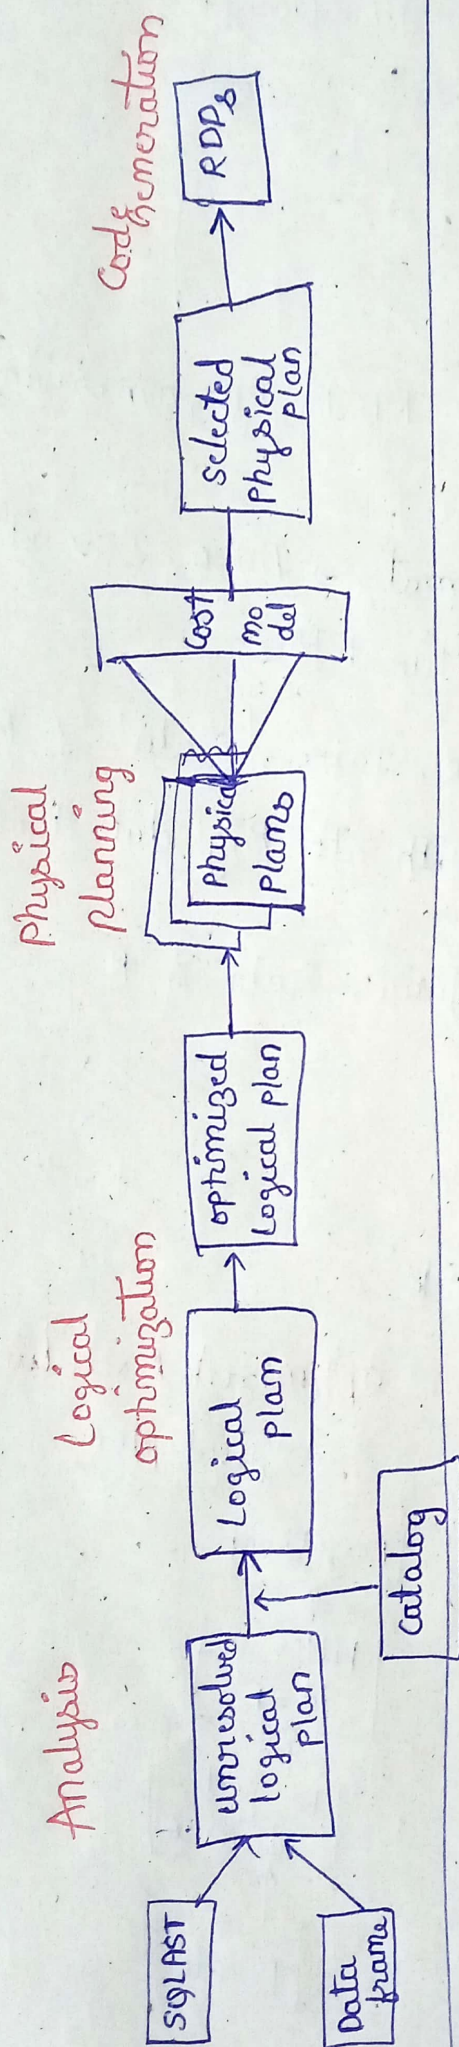 Analysis
Logical
optimization
Physical
planning
Code
Generation
SQLAST
Data
frame
unresolved
logical
plan
Catalog
Logical
plan
optimized
Logical plan
Physical
plans
Cost
mo
del
Selected
Physical
plan
RDPs